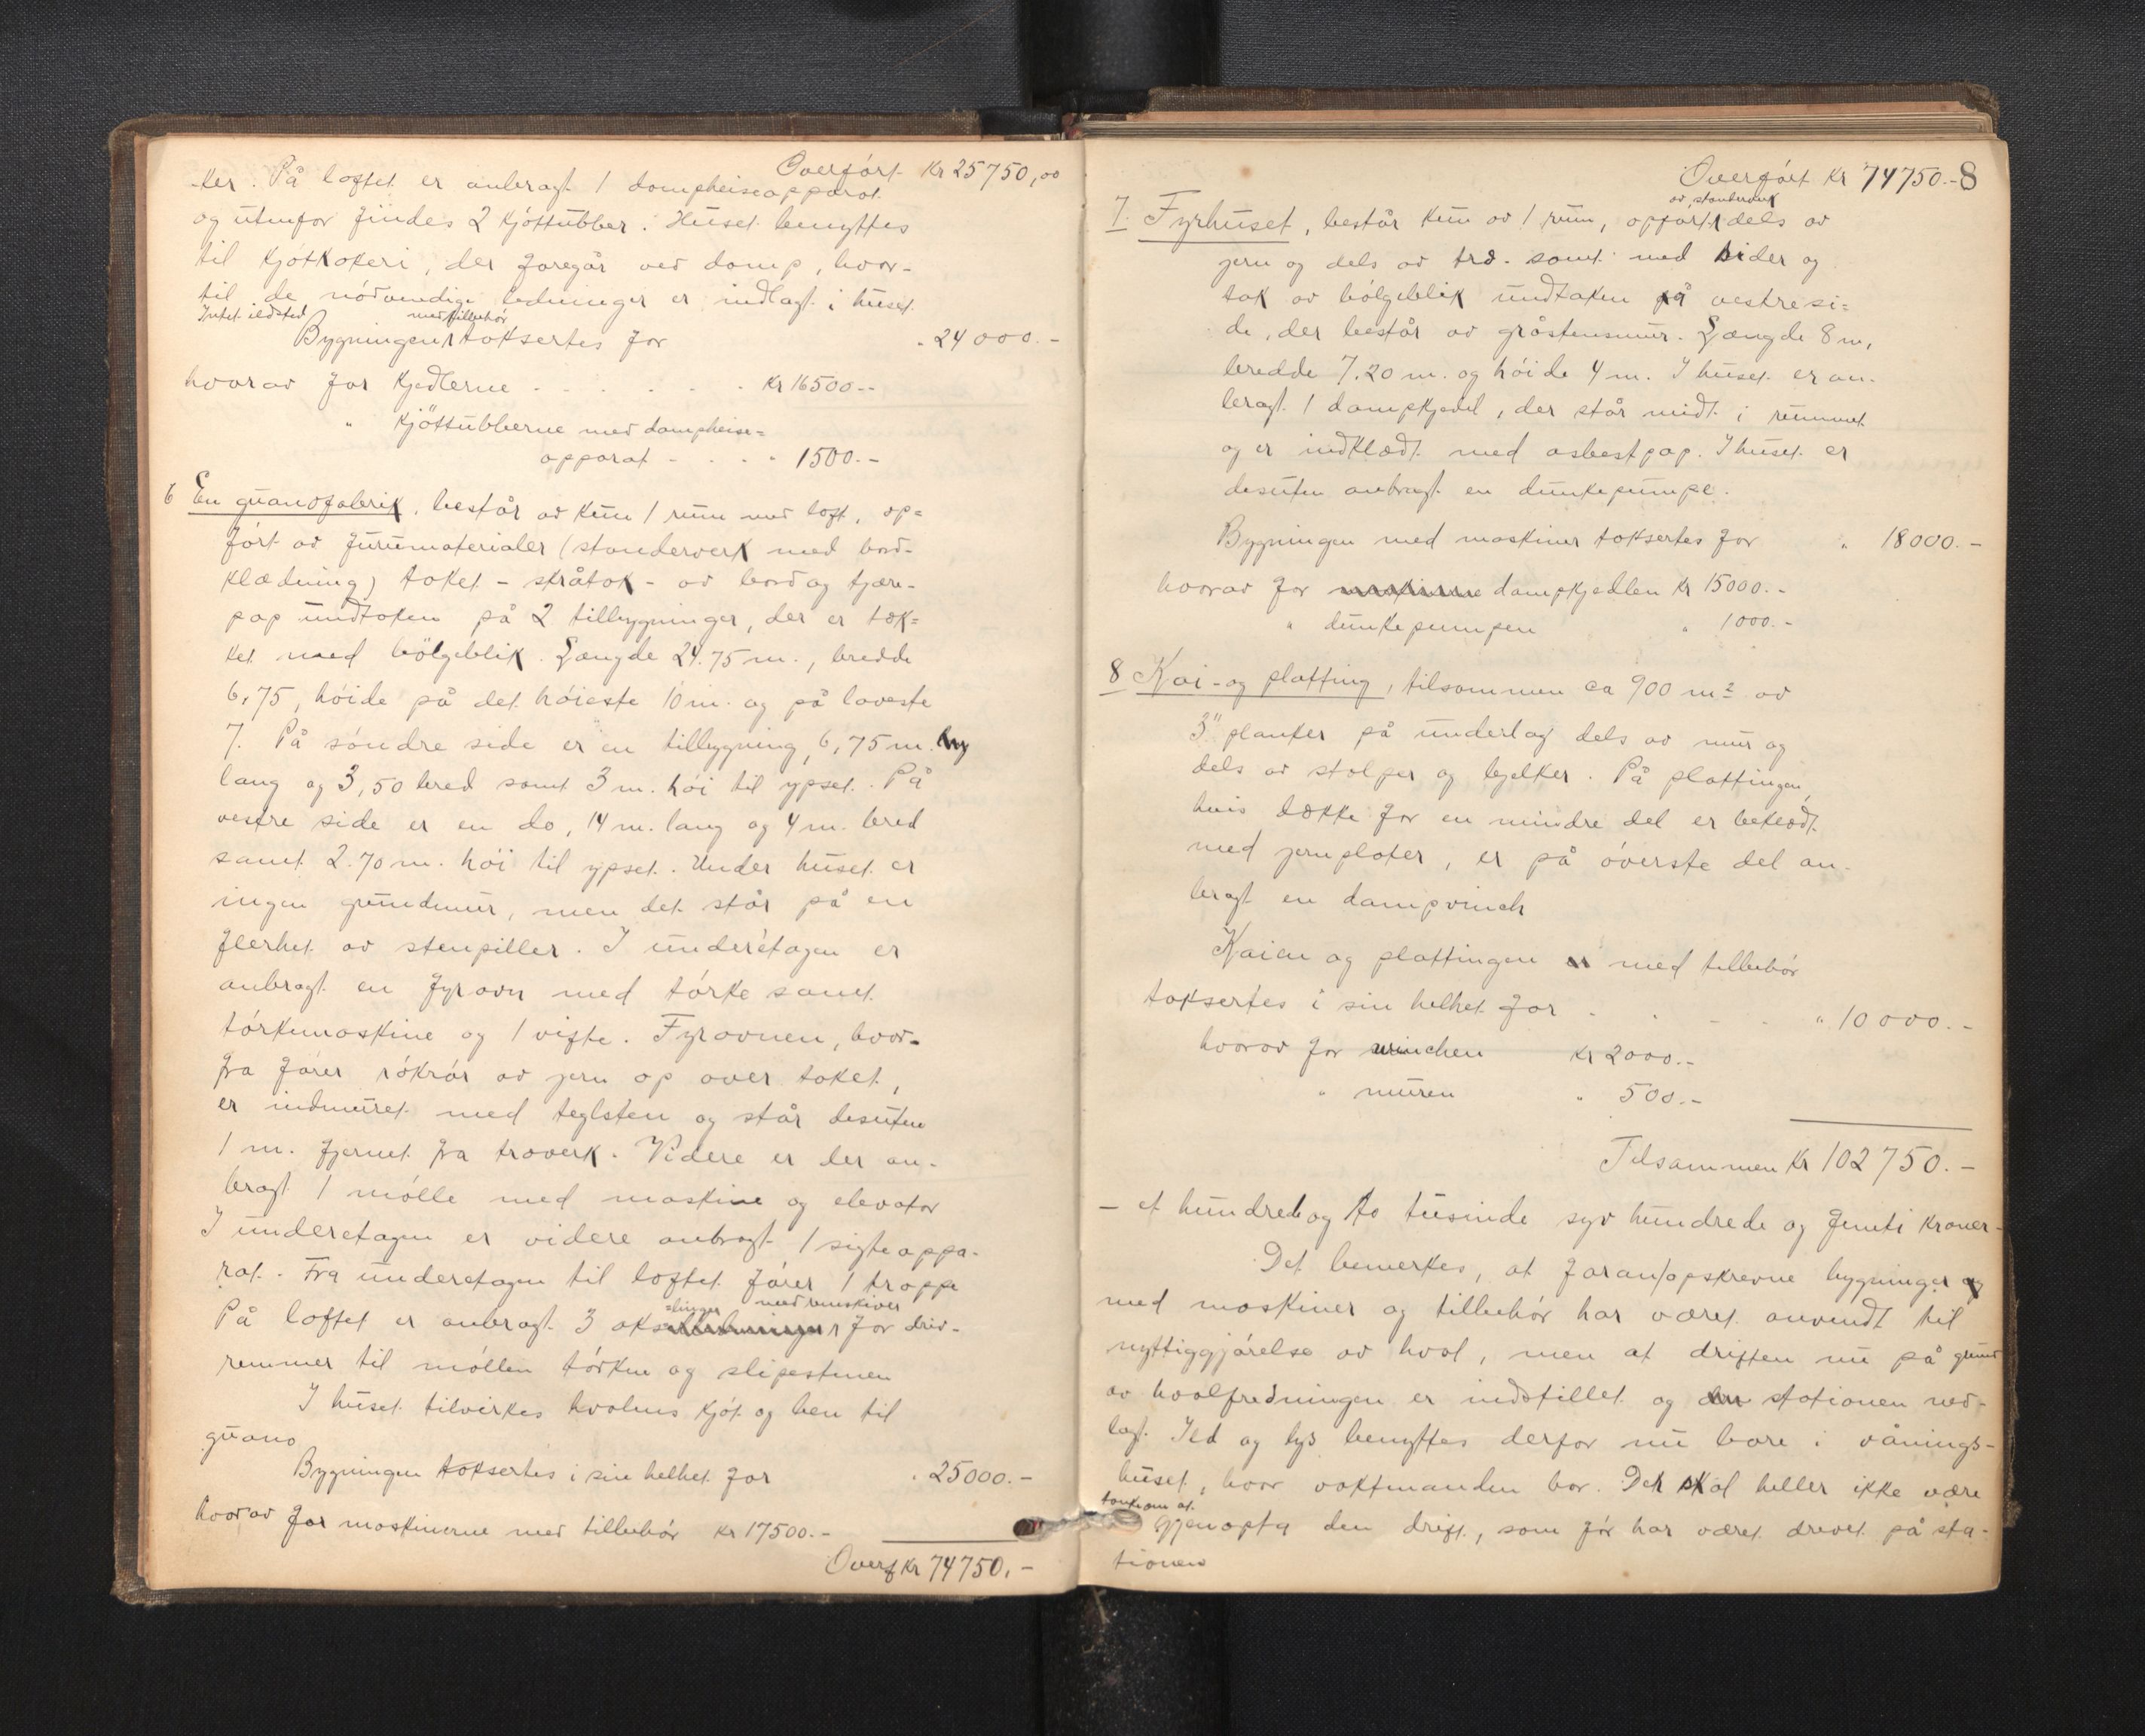 Overført Kr 25750,00
ker. På loftet er anbragt 1 dampheiseapparat
og utenfor findes 2 kjøttubber. Huset benyttes
til kjøtkokeri, der foregår ved damp, hvor-
til de nödvendige ledninger er indlagt i huset.
Intet ildsted
med tilbehör
Bygningen taksertes for " 24000.-
hvorav for kjedlerne . . . . . Kr 16500.-
" kjöttubberne med dampheise=
apparat - . . . " 1500.-
6 En guanofabrik, består av kun 1 rum med loft, op=
ført av furumaterialer (standerverk med bord-
klædning) taket - skråtak - av bord og tjære-
pap undtaken på 2 tilbygninger, der er tæk=
ket med bölgeblik. Længde 24.75 m., bredde
6,75, höide på det höieste 10 m. og på laveste
7. På søndre side er en tilbygning, 6,75 m.
lang og 3,50 bred samt 3 m. høi til gpset. På
vestre side er en do, 14 m. lang og 4 m. bred
samt 2.70 m. høi til gpset. Under huset er
ingen grundmur, men det står på en
flerhet av stenpiller. I underetagen er
anbragt en fyrovn med tørke samt
tørkemaskine og 1 vifte. Fyrovnen, hvor-
fra fører rökrör av jern op over taket,
er indmuret med teglsten og står desuten
1 m. fjernet fra træverk. Videre er der an-
bragt 1 mølle med maskine og elevator
I underetagen er videre anbragt 1 sigteappa-
rat. Fra underetagen til loftet fører 1 trappe
slinger med remskiver
På loftet er anbragt 3 aks for driv-
remmer til møllen tørken og slipestenen
I huset tilvirkes hvalens kjøt og ben til
guano
Bygningen taksertes i sin helhet for " 25000.-
hvorav for maskinerne med tilbehör Kr 17500.-
Overf Kr 74750.-
Overført Kr 74750.- 8
av standerverk
7. Fyrhuset, består kun av 1 rum, opført dels av
jern og dels av træ. samt med sider og
tak av bölgeblik undtaken på vestresi=
de, der består av gråstensmur. Længde 8 m,
bredde 7.20 m. og høide 4 m. I huset er an-
bragt 1 dampkjedel, der står midt i rummet
og er indklædt med asbestpap. I huset er
desuten anbragt en dunkepumpe.
Bygningen med maskiner taksertes for " 18000.-
hvorav for dampkjedlen Kr 15000.-
" dunkepumpen " 1000.-
8 Kai- og platting, tilsammen ca 900 m² av
3" planker på underlag dels av mur og
dels av stolper og bjelker. På plattingen,
hvis dække for en mindre del er beklædt
med jernplater, er på øverste del an-
bragt en dampvinch
Kaien og plattingen med tilbehør
taksertes i sin helhet for . . - . " 10000.-
hvorav for winchen Kr 2000.-
" muren " 500.-
Tilsammen Kr 102750.-
- et hundrede og to tusinde syv hundrede og femti kroner -
Det bemerkes, at foran/opskrevne bygninger
med maskiner og tilbehør har været anvendt til
nyttiggjørelse av hval, men at driften nu på grund
av hvalfredningen er indstillet og stationen ned-
lagt. Ild og lys benyttes derfor nu bare i vånings-
huset, hvor vaktmanden bor. Det skal heller ikke være
tanke om at
gjenopta den drift, som før har været drevet på sta-
tionen